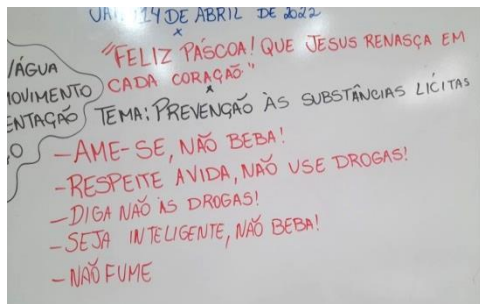 14 DE ABRIL DE 2022
"FELIZ PÁSCOA! QUE JESUS RENASÇA EM
CADA CORAÇÃO"
/ÁGUA
TEMA: PREVENÇÃO ÀS SUBSTÂNCIAS LÍCITAS
- AME-SE, NÃO BEBA!
- RESPEITE A VIDA, NÃO USE DROGAS!
- DIGA NÃO ÀS DROGAS!
- SEJA INTELIGENTE, NÃO BEBA!
- NÃO FUME